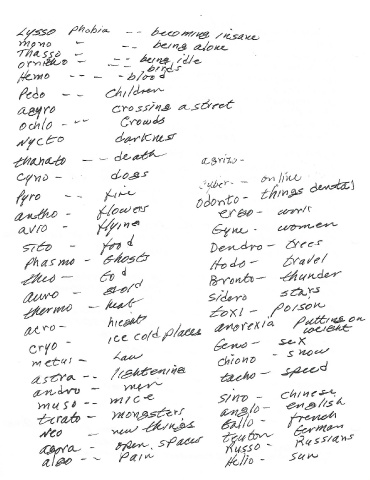 Lysso phobia -- becoming insane
mono - -- being alone
Thasso - -- being idle
ornitho -- birds
Hemo -- - - blood
Pedo -- Children
agyro crossing a street
ochlo - -- Crowds
Nycto darkness
thanato -- - death
cyno - dogs
Pyro -- fire
antho - flowers
avio - flying
sito - food
Phasmo - Ghosts
theo - God
auro - gold
thermo - heat
acro - hieght
cryo - ice cold places
metus - Law
astra -- lightenine
andro - men
musa -- mice
terato - mongsters
Neo - new things
agora - open spaces
algo -- Pain
agrizo-
cyber -- online
Odonto - things dental
ergo - work
Gyne - women
Dendro - trees
Hodo - travel
Bronto - thunder
Sidero stars
toxi - Poison
anorexia Putting on weight
Geno - sex
chiono - snow
tacho - speed
sino - chinese
anglo - english
Gallo - french
teuton German
Russo - Russians
Helio - sun